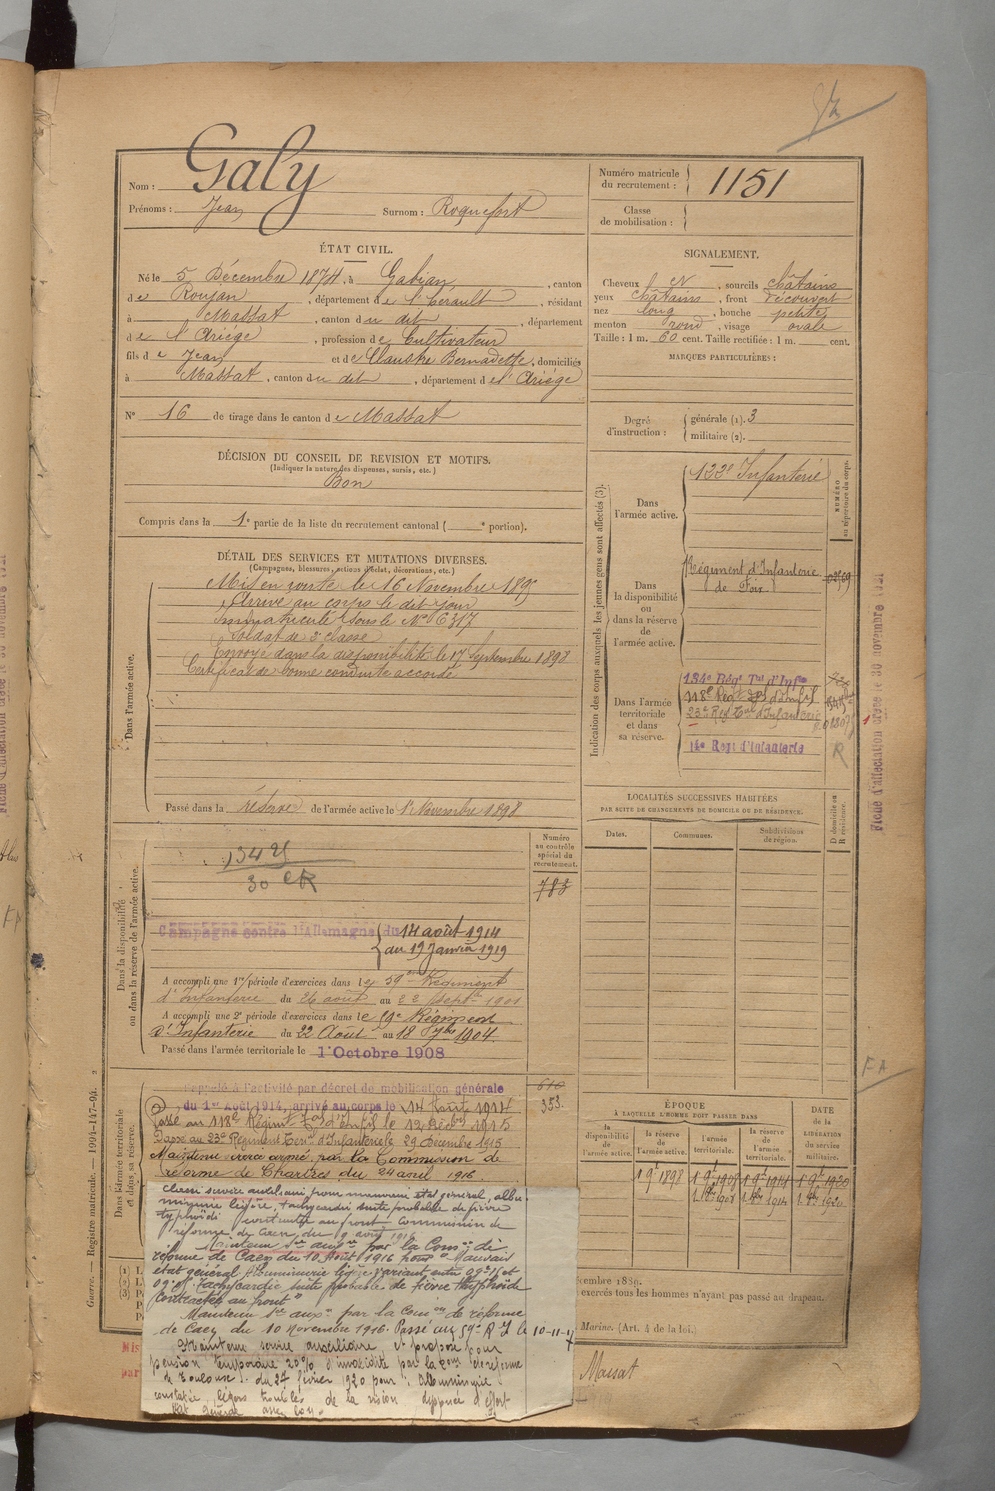 Galy
Nom :
Prénoms : Jean Surnom : Roquefort
Numéro matricule du recrutement : 1151
Classe de mobilisation :
ÉTAT CIVIL.
Né le 5 Décembre 1874, à Gabian, canton
de Roujan, département de l'Hérault, résidant
à Massat, canton du dit, département
de l'Ariége, profession de Cultivateur
fils de Jean et de Claustre Bernadette, domiciliés
à Massat, canton du dit, département de l'Ariége
N° 16 de tirage dans le canton de Massat
SIGNALEMENT.
Cheveux N, sourcils châtains
yeux châtains, front découvert
nez long, bouche petite
menton rond, visage ovale
Taille : 1 m. 60 cent. Taille rectifiée : 1 m. cent.
MARQUES PARTICULIÈRES :
Degré d'instruction : générale (1). 3
militaire (2).
DÉCISION DU CONSEIL DE REVISION ET MOTIFS.
(Indiquer la nature des dispenses, sursis, etc.)
Bon
Compris dans la 1e partie de la liste du recrutement cantonal ( e portion).
DÉTAIL DES SERVICES ET MUTATIONS DIVERSES.
(Campagnes, blessures, actions d'éclat, décorations, etc.)
Dans l'armée active.
Mis en route le 16 Novembre 1895
Arrivé au corps le dit jour
Immatriculé sous le N° 6317
Soldat de 2e classe
Envoyé dans la disponibilité le 17 Septembre 1898
Certificat de bonne conduite accordé
Passé dans la réserve de l'armée active le 1er Novembre 1898
Indication des corps auxquels les jeunes gens sont affectés (3).
NUMÉRO au répertoire du corps.
Dans l'armée active.
122e Infanterie
Dans la disponibilité ou dans la réserve de l'armée active.
Régiment d'Infanterie
de Foix
Dans l'armée territoriale et dans sa réserve.
134e Régt Tal d'Infie
118e Régt Tal d'Infie
23e Reg Tal d'Infanterie
R
Fiche d'affectation créée le 30 novembre 1921
LOCALITÉS SUCCESSIVES HABITÉES
PAR SUITE DE CHANGEMENTS DE DOMICILE OU DE RÉSIDENCE.
Dates.
Communes.
Subdivisions de région.
D domicile ou R résidence.
Dans la disponibilité ou dans la réserve de l'armée active.
Numéro au contrôle spécial du recrutement.
783
Campagne contre l'Allemagne du 14 août 1914
au 19 Janvier 1919
A accompli une 1re période d'exercices dans le 59e Régiment
d'Infanterie du 26 août au 22 Septbre 1901
A accompli une 2e période d'exercices dans le 59e Régiment
d'Infanterie du 22 Août au 18 7bre 1904.
Passé dans l'armée territoriale le 1er Octobre 1908
FA
Dans l'armée territoriale et dans sa réserve.
353
Rappelé à l'activité par décret de mobilisation générale
du 1er Août 1914, arrivé au corps le 14 Août 1914
Passé au 118e Régimt Tal d'Infie le 12 Décbre 1915
Passé au 23e Régiment Terral d'Infanterie le 29 Décembre 1915
Maintenu service armé par la Commission de
réforme de Chartres du 24 avril 1916
ÉPOQUE
À LAQUELLE L'HOMME DOIT PASSER DANS
la disponibilité de l'armée active.
la réserve de l'armée active.
l'armée territoriale.
la réserve de l'armée territoriale.
DATE de la LIBÉRATION du service militaire.
Classé service auxiliaire pour mauvais état général, albu-
minurie légère, tachycardie suite probable de fièvre
typhoïde contractée au front Commission de
réforme de Caen du
Maintenu Sce auxre par la Comon de
réforme de Caen du 10 Août 1916 pour Mauvais
état général Albuminurie légère variant entre
Tachycardie suite probable de fièvre typhoïde
contractée au front
Maintenu Sce auxre par la Comon de réforme
de Caen du 10 novembre 1916. Passé au 59e R I le 10-11-17
Maintenu service auxiliaire et proposé pour
pension temporaire 20% d'invalidité par la Comon de réforme
de Toulouse du 27 février 1920 pour : Albuminurie
constatée, légers troubles de la vision dyspnée d'effort
Etat général assez bon.
exercés tous les hommes n'ayant pas passé au drapeau.
Marine. (Art. 4 de la loi.)
Massat
Guerre. — Registre matricule. — 1994-147-94.